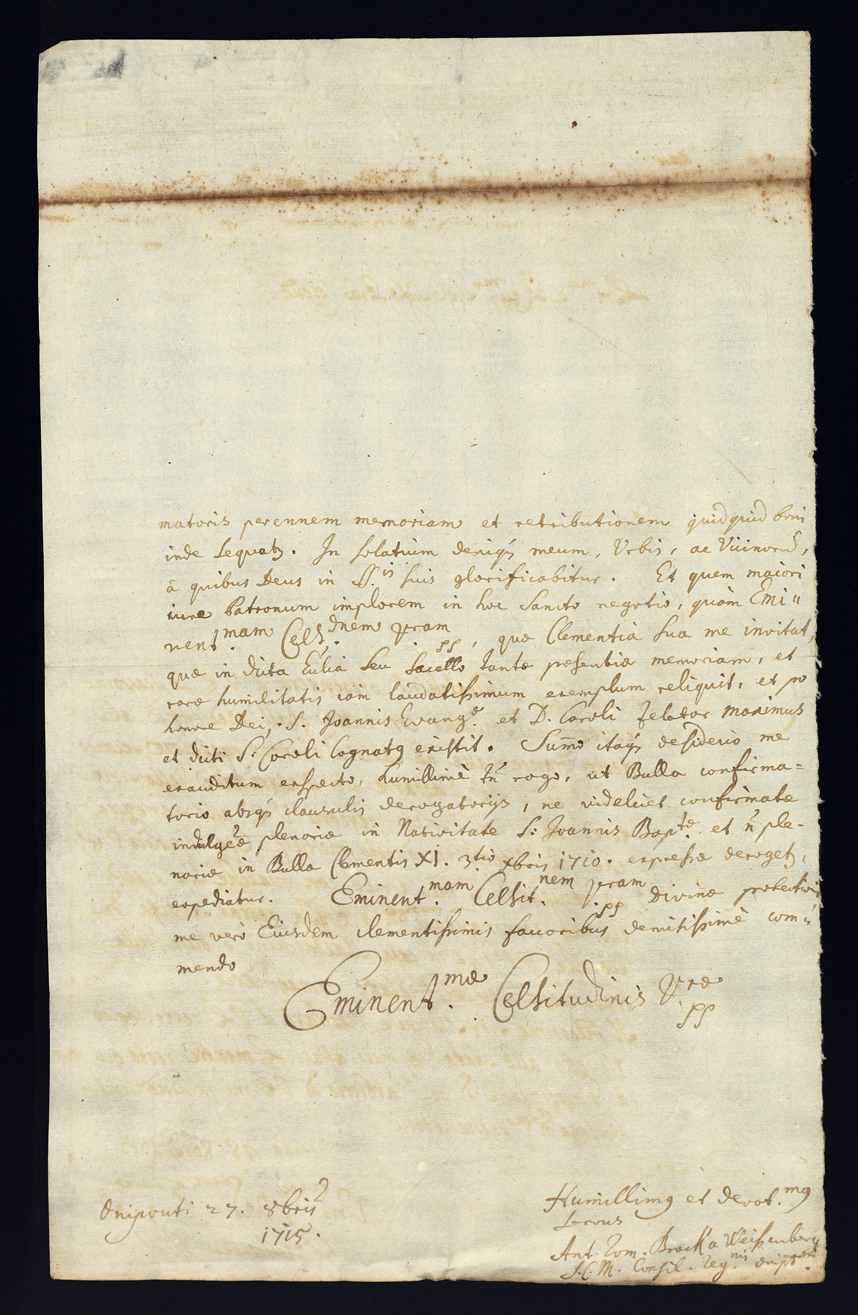 matoris perennem memoriam et retributionem quidquid boni
inde sequetr. In solatium deniqs meum, Urbis, ac Vicinorũ,
à quibus Deus in SS.is suis glorificabitur. Et quem maiori
iure Patronum implorem in hoc Sancto negotio, quàm Emi„
nent.mam Cels.dnem vram PP, quæ Clementiâ sua me invitat,
quæ in dicta Ædiâ seu Sacello tantæ præsentiæ memoriam, et
raræ humilitatis iam laudatissimum exemplum reliquit, et pro
honore Dei, S. Joannis Evang.æ et D. Caroli Zelator maximus
et dicti S. Caroli Cognatq existit. Sum̃o itaqs desiderio me
exauditum expecto, humillimè tñ rogo, ut Bulla confirma=
toria absqs clausulis derogatorijs, ne videlicet confirmatæ
indulgẽ plenariæ in Nativitate S: Joannis Bapt.æ et ñ ple-
nariæ in Bulla Clementis XI. 3tiò Xbris 1710. expressæ derogetr,
expediatur. Eminent.mam Celsit.nem vram PP divinæ protectioni
me verò Eiusdem clementissimis favoribus demississimè com„
mendo
Eminent.mæ Celsitudinis V.ræ
PP
Oniponti 27. 8bris
1715.
Humillimq et devot.mq
servus
Ant. Rom. Brock a Weissenberg
S.C.M. Consil. Reg.nis Onipt.